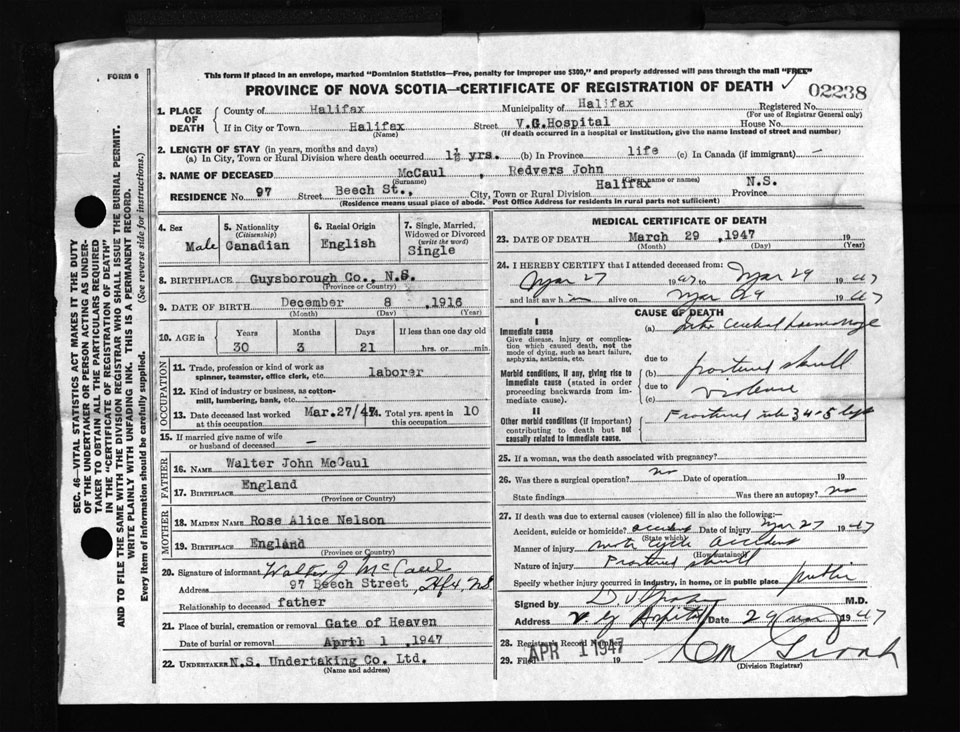 FORM 6
This form if placed in an envelope, marked "Dominion Statistics—Free, penalty for improper use $300," and properly addressed will pass through the mail "FREE"
PROVINCE OF NOVA SCOTIA—CERTIFICATE OF REGISTRATION OF DEATH
02238
1. PLACE OF DEATH
County of Halifax Municipality of Halifax Registered No.
(For use of Registrar General only)
If in City or Town Halifax Street V.G.Hospital House No.
(Name) (If death occurred in a hospital or institution, give the name instead of street and number)
2. LENGTH OF STAY (in years, months and days)
(a) In City, Town or Rural Division where death occurred 1½ yrs. (b) In Province life (c) In Canada (if immigrant) —
3. NAME OF DECEASED McCaul , Redvers John
(Surname) (Given name or names)
RESIDENCE No. 97 Street Beech St., City, Town or Rural Division Halifax Province N.S.
(Residence means usual place of abode. Post Office Address for residents in rural parts not sufficient)
4. Sex Male
5. Nationality (Citizenship) Canadian
6. Racial Origin English
7. Single, Married, Widowed or Divorced (write the word) Single
8. BIRTHPLACE Guysborough Co., N.S.
(Province or Country)
9. DATE OF BIRTH December 8 ,1916
(Month) (Day) (Year)
10. AGE in Years Months Days If less than one day old
30 3 21 hrs. or min.
OCCUPATION
11. Trade, profession or kind of work as spinner, teamster, office clerk, etc. laborer
12. Kind of industry or business, as cotton-mill, lumbering, bank, etc.
13. Date deceased last worked at this occupation Mar.27/47 14. Total yrs. spent in this occupation 10
15. If married give name of wife or husband of deceased —
FATHER
16. NAME Walter John McCaul
17. BIRTHPLACE England
(Province or Country)
MOTHER
18. MAIDEN NAME Rose Alice Nelson
19. BIRTHPLACE England
(Province or Country)
20. Signature of informant Walter J McCaul
Address 97 Beech Street, Hfx, N.S
Relationship to deceased father
21. Place of burial, cremation or removal Gate of Heaven
Date of burial or removal April 1 ,1947
22. UNDERTAKER N.S. Undertaking Co. Ltd.
(Name and address)
MEDICAL CERTIFICATE OF DEATH
23. DATE OF DEATH March 29 ,1947 19
(Month) (Day) (Year)
24. I HEREBY CERTIFY that I attended deceased from:
Mar 27 1947 to Mar 29 1947
and last saw him alive on Mar 29 1947
CAUSE OF DEATH
I
Immediate cause
Give disease, injury or complication which caused death, not the mode of dying, such as heart failure, asphyxia, asthenia, etc.
(a) haemorrhage
due to
Morbid conditions, if any, giving rise to immediate cause (stated in order proceeding backwards from immediate cause).
(b) fractured skull
due to
(c) violence
II
Other morbid conditions (if important) contributing to death but not causally related to immediate cause.
Fractured ribs 3 4-5 left
25. If a woman, was the death associated with pregnancy?
26. Was there a surgical operation? no Date of operation 19
State findings Was there an autopsy? no
27. If death was due to external causes (violence) fill in also the following:—
Accident, suicide or homicide? accident Date of injury Mar 27 1947
(State which)
Manner of injury motor cycle accident
(How sustained)
Nature of injury Fractured skull
Specify whether injury occurred in industry, in home, or in public place public
Signed by M.D.
Address V. G Hospital Date 29 Mar 1947
28. Registrar's Record Number
29. Filed APR 1 1947 19
(Division Registrar)
SEC. 46—VITAL STATISTICS ACT MAKES IT THE DUTY
OF THE UNDERTAKER OR PERSON ACTING AS UNDER-
TAKER TO OBTAIN ALL THE PARTICULARS REQUIRED
IN THE "CERTIFICATE OF REGISTRATION OF DEATH"
AND TO FILE THE SAME WITH THE DIVISION REGISTRAR WHO SHALL ISSUE THE BURIAL PERMIT.
WRITE PLAINLY WITH UNFADING INK. THIS IS A PERMANENT RECORD.
Every item of information should be carefully supplied. (See reverse side for instructions.)